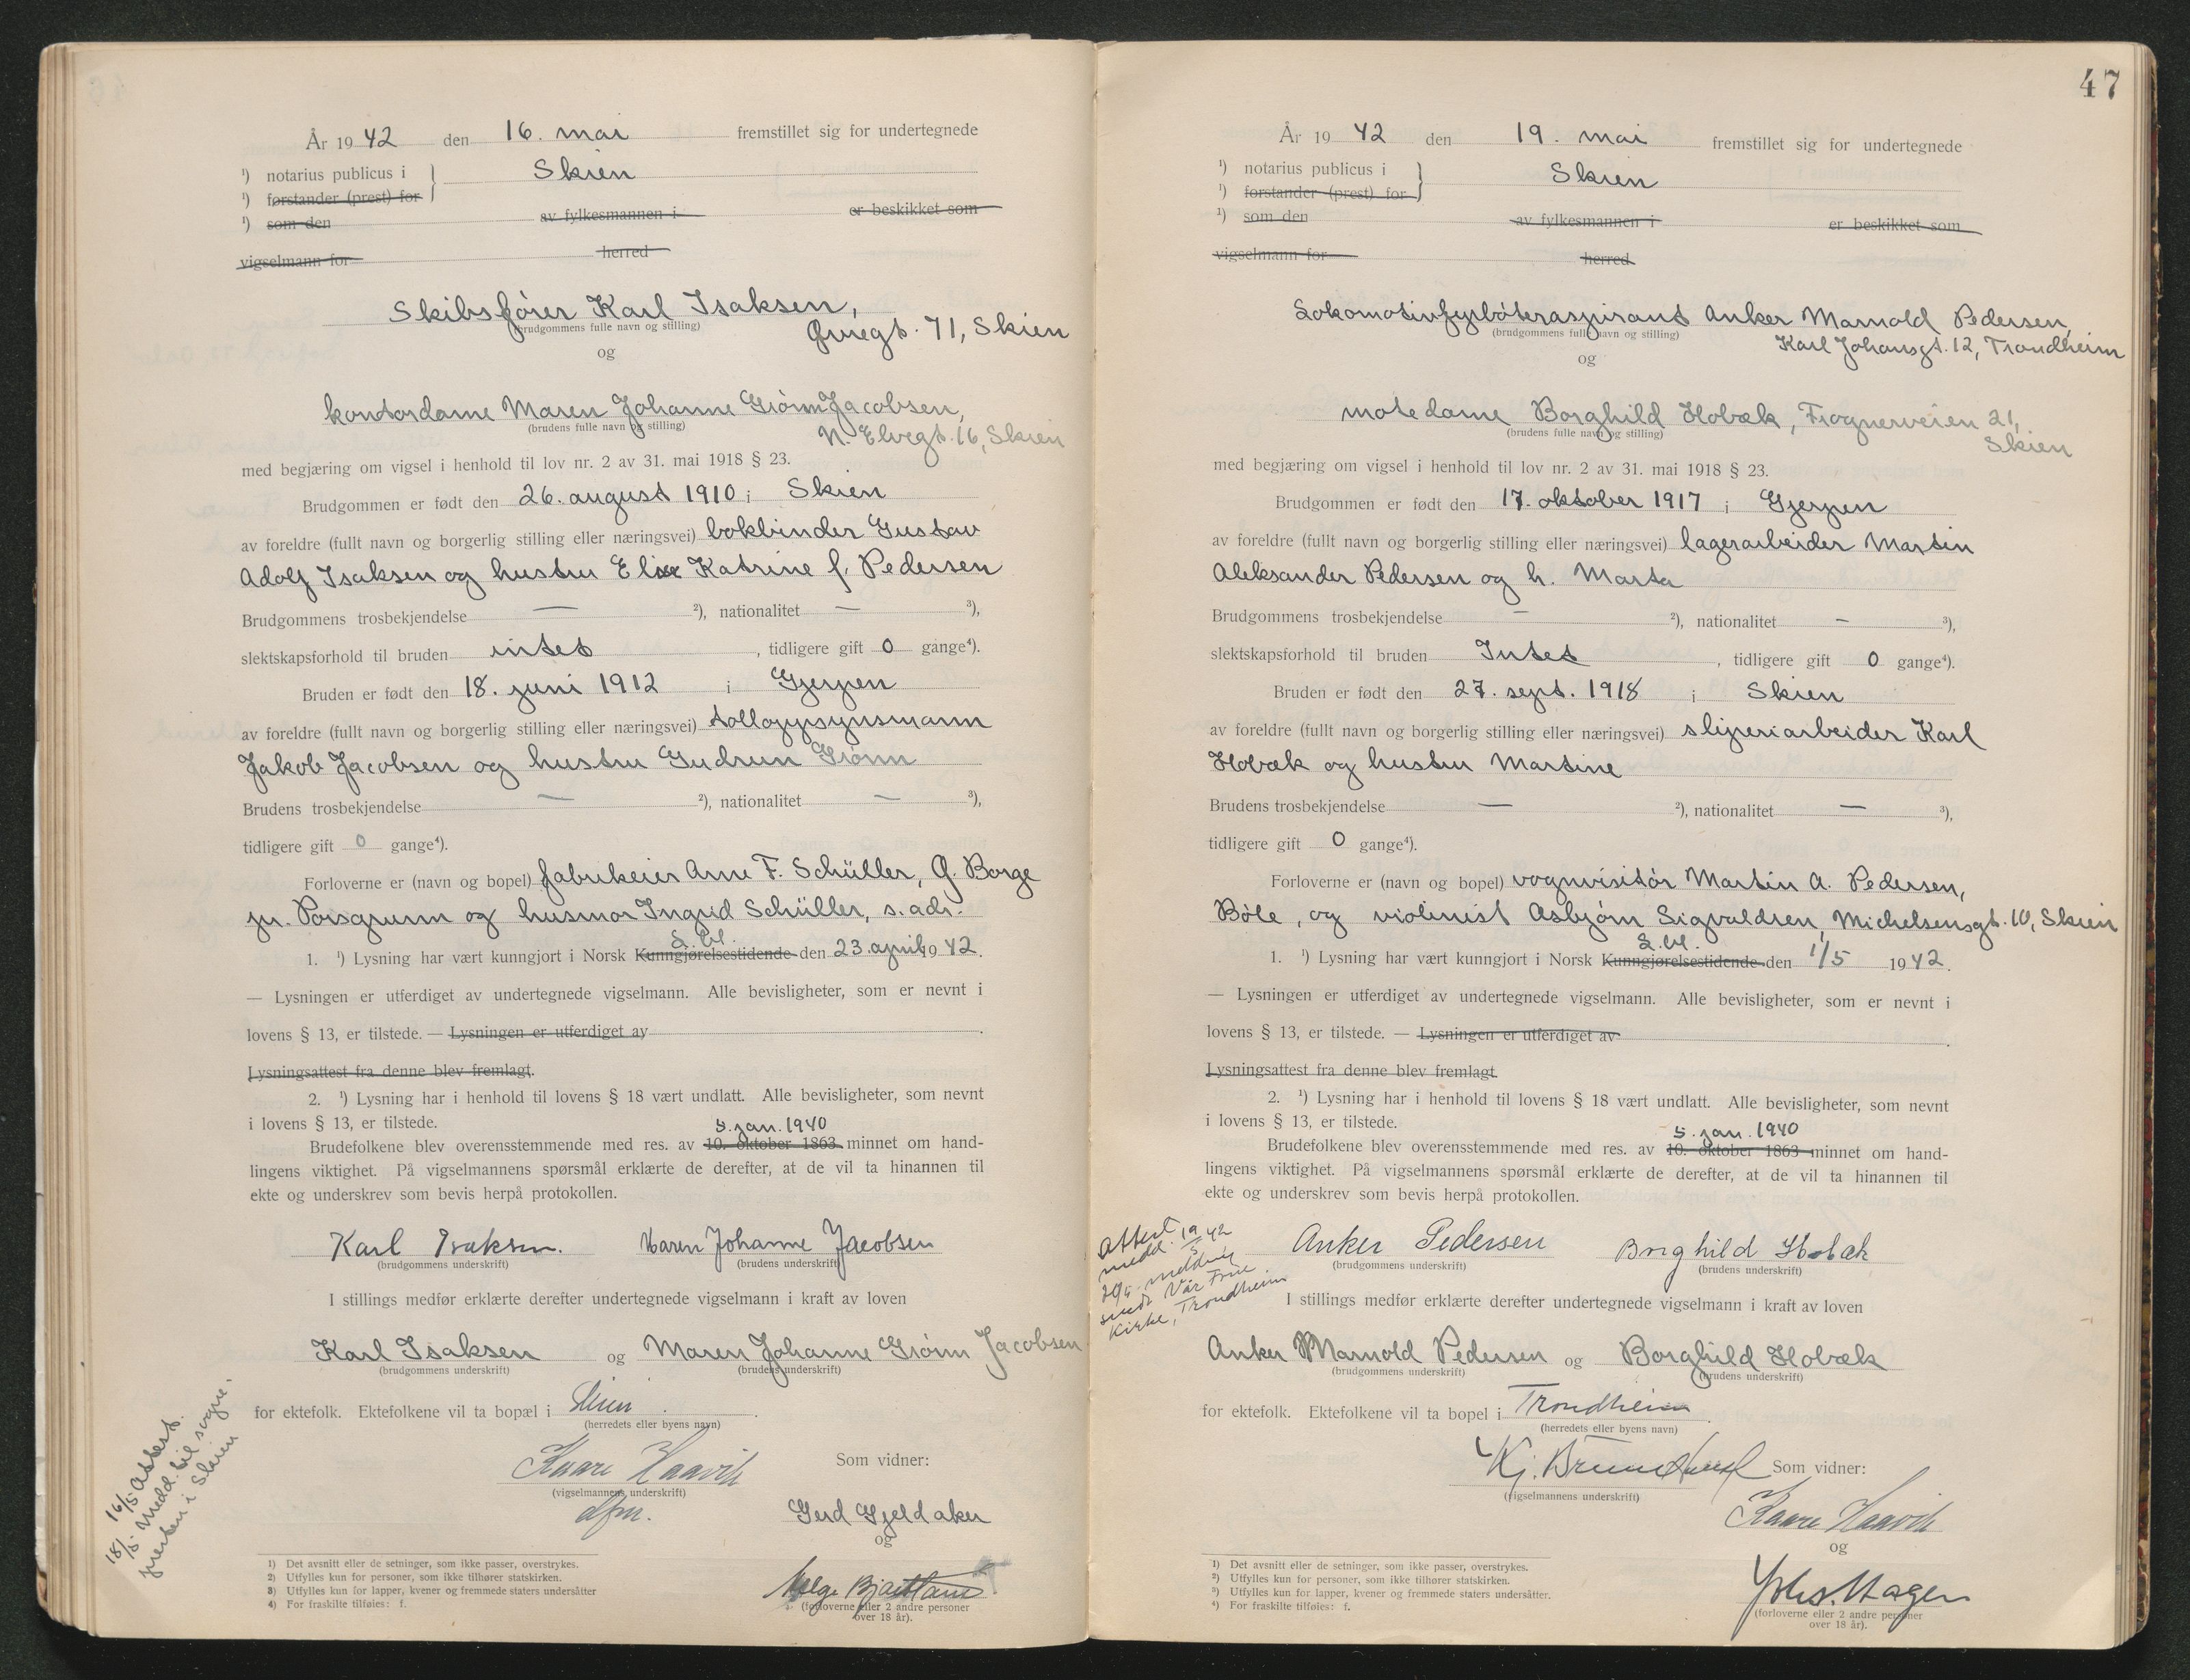 År 1942 den 16. mai fremstillet sig for undertegnede
¹) notarius publicus i } Skien
¹) forstander (prest) for
¹) som den av fylkesmannen i er beskikket som
vigselmann for herred
Skibsfører Karl Isaksen,
(brudgommens fulle navn og stilling)
gt. 71, Skien
og
kontordame Maren Johanne Grønn Jacobsen,
(brudens fulle navn og stilling)
N. Elvegt. 16, Skien
med begjæring om vigsel i henhold til lov nr. 2 av 31. mai 1918 § 23.
Brudgommen er født den 26. august 1910 i Skien
av foreldre (fullt navn og borgerlig stilling eller næringsvei) bokbinder Gustav
Adolf Isaksen og hustru Katrine f. Pedersen
Brudgommens trosbekjendelse — ²), nationalitet — ³),
slektskapsforhold til bruden intet, tidligere gift 0 gange⁴).
Bruden er født den 18. juni 1912 i Gjerpen
av foreldre (fullt navn og borgerlig stilling eller næringsvei) tolloppsynsmann
Jakob Jacobsen og hustru Gudrun Grønn
Brudens trosbekjendelse — ²), nationalitet — ³),
tidligere gift 0 gange⁴).
Forloverne er (navn og bopel) fabrikeier Arne F. Schüller, G. Borge
pr. Porsgrunn og husmor Ingrid Schüller, s. adr.
S. bl.
1. ¹) Lysning har vært kunngjort i Norsk Kunngjørelsestidende den 23. april 1942.
— Lysningen er utferdiget av undertegnede vigselmann. Alle bevisligheter, som er nevnt i
lovens § 13, er tilstede. — Lysningen er utferdiget av .
Lysningsattest fra denne blev fremlagt.
2. ¹) Lysning har i henhold til lovens § 18 vært undlatt. Alle bevisligheter, som nevnt
i lovens § 13, er tilstede.
5. jan. 1940
Brudefolkene blev overensstemmende med res. av 10. oktober 1863 minnet om hand-
lingens viktighet. På vigselmannens spørsmål erklærte de derefter, at de vil ta hinannen til
ekte og underskrev som bevis herpå protokollen.
Karl Isaksen. Maren Johanne Jacobsen
(brudgommens underskrift) (brudens underskrift)
I stillings medfør erklærte derefter undertegnede vigselmann i kraft av loven
Karl Isaksen og Maren Johanne Grønn Jacobsen
(brudgommens underskrift) (brudens underskrift)
for ektefolk. Ektefolkene vil ta bopæl i Skien.
(herredets eller byens navn)
Kaare Haavik Som vidner:
(vigselmannens underskrift)
dfm.
Gerd Gjeldaker
og
Helge
(forloverne eller 2 andre personer
over 18 år).
16/5 Attest.
18/5 Medd. til sogne-
presten i Skien
1) Det avsnitt eller de setninger, som ikke passer, overstrykes.
2) Utfylles kun for personer, som ikke tilhører statskirken.
3) Utfylles kun for lapper, kvener og fremmede staters undersåtter
4) For fraskilte tilføies: f.
47
År 1942 den 19. mai fremstillet sig for undertegnede
¹) notarius publicus i } Skien
¹) forstander (prest) for
¹) som den av fylkesmannen i er beskikket som
vigselmann for herred
Lokomotivfyrbøteraspirant Anker Marnold Pedersen,
(brudgommens fulle navn og stilling)
Karl Johansgt. 12, Trondheim
og
motedame Borghild Hobæk, Frognerveien 21,
(brudens fulle navn og stilling)
Skien
med begjæring om vigsel i henhold til lov nr. 2 av 31. mai 1918 § 23.
Brudgommen er født den 17. oktober 1917 i Gjerpen
av foreldre (fullt navn og borgerlig stilling eller næringsvei) lagerarbeider Martin
Aleksander Pedersen og h. Marta
Brudgommens trosbekjendelse — ²), nationalitet — ³),
slektskapsforhold til bruden Intet, tidligere gift 0 gange⁴).
Bruden er født den 27. sept. 1918 i Skien
av foreldre (fullt navn og borgerlig stilling eller næringsvei) sliperiarbeider Karl
Hobæk og hustru Martine
Brudens trosbekjendelse — ²), nationalitet — ³),
tidligere gift 0 gange⁴).
Forloverne er (navn og bopel) vognvisitør Martin A. Pedersen,
Bøle, og violinist Asbjørn Sigvaldsen, Michelsensgt. 10, Skien
S. bl.
1. ¹) Lysning har vært kunngjort i Norsk Kunngjørelsestidende den 1/5 1942.
— Lysningen er utferdiget av undertegnede vigselmann. Alle bevisligheter, som er nevnt i
lovens § 13, er tilstede. — Lysningen er utferdiget av .
Lysningsattest fra denne blev fremlagt.
2. ¹) Lysning har i henhold til lovens § 18 vært undlatt. Alle bevisligheter, som nevnt
i lovens § 13, er tilstede.
5. jan. 1940
Brudefolkene blev overensstemmende med res. av 10. oktober 1863 minnet om hand-
lingens viktighet. På vigselmannens spørsmål erklærte de derefter, at de vil ta hinannen til
ekte og underskrev som bevis herpå protokollen.
Attest
medd. 19/5 42
20/5 melding
sendt Vår Frue
Kirke, Trondheim
Anker Pedersen Borghild Hobæk
(brudgommens underskrift) (brudens underskrift)
I stillings medfør erklærte derefter undertegnede vigselmann i kraft av loven
Anker Marnold Pedersen og Borghild Hobæk
(brudgommens underskrift) (brudens underskrift)
for ektefolk. Ektefolkene vil ta bopel i Trondheim.
(herredets eller byens navn)
Kj. Som vidner:
(vigselmannens underskrift)
Kaare Haavik
og
Johs. Hagen
(forloverne eller 2 andre personer
over 18 år).
¹) Det avsnitt eller de setninger, som ikke passer, overstrykes.
²) Utfylles kun for personer, som ikke tilhører statskirken.
³) Utfylles kun for lapper, kvener og fremmede staters undersåtter.
⁴) For fraskilte tilføies: f.